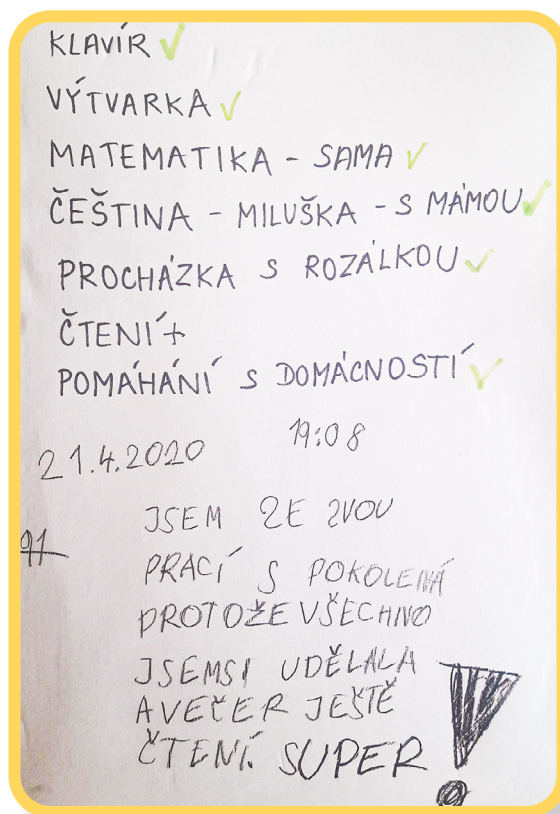 KLAVÍR ✓
VÝTVARKA ✓
MATEMATIKA - SAMA ✓
ČEŠTINA - MILUŠKA - S MÁMOU ✓
PROCHÁZKA S ROZÁLKOU ✓
ČTENÍ +
POMÁHÁNÍ S DOMÁCNOSTÍ ✓
21.4.2020 19:08
JSEM ZE ZVOU
PRACÍ S POKOLENÁ
PROTOŽE VŠECHNO
JSEMSI UDĚLALA
AVEČER JEŠTĚ
ČTENÍ. SUPER!